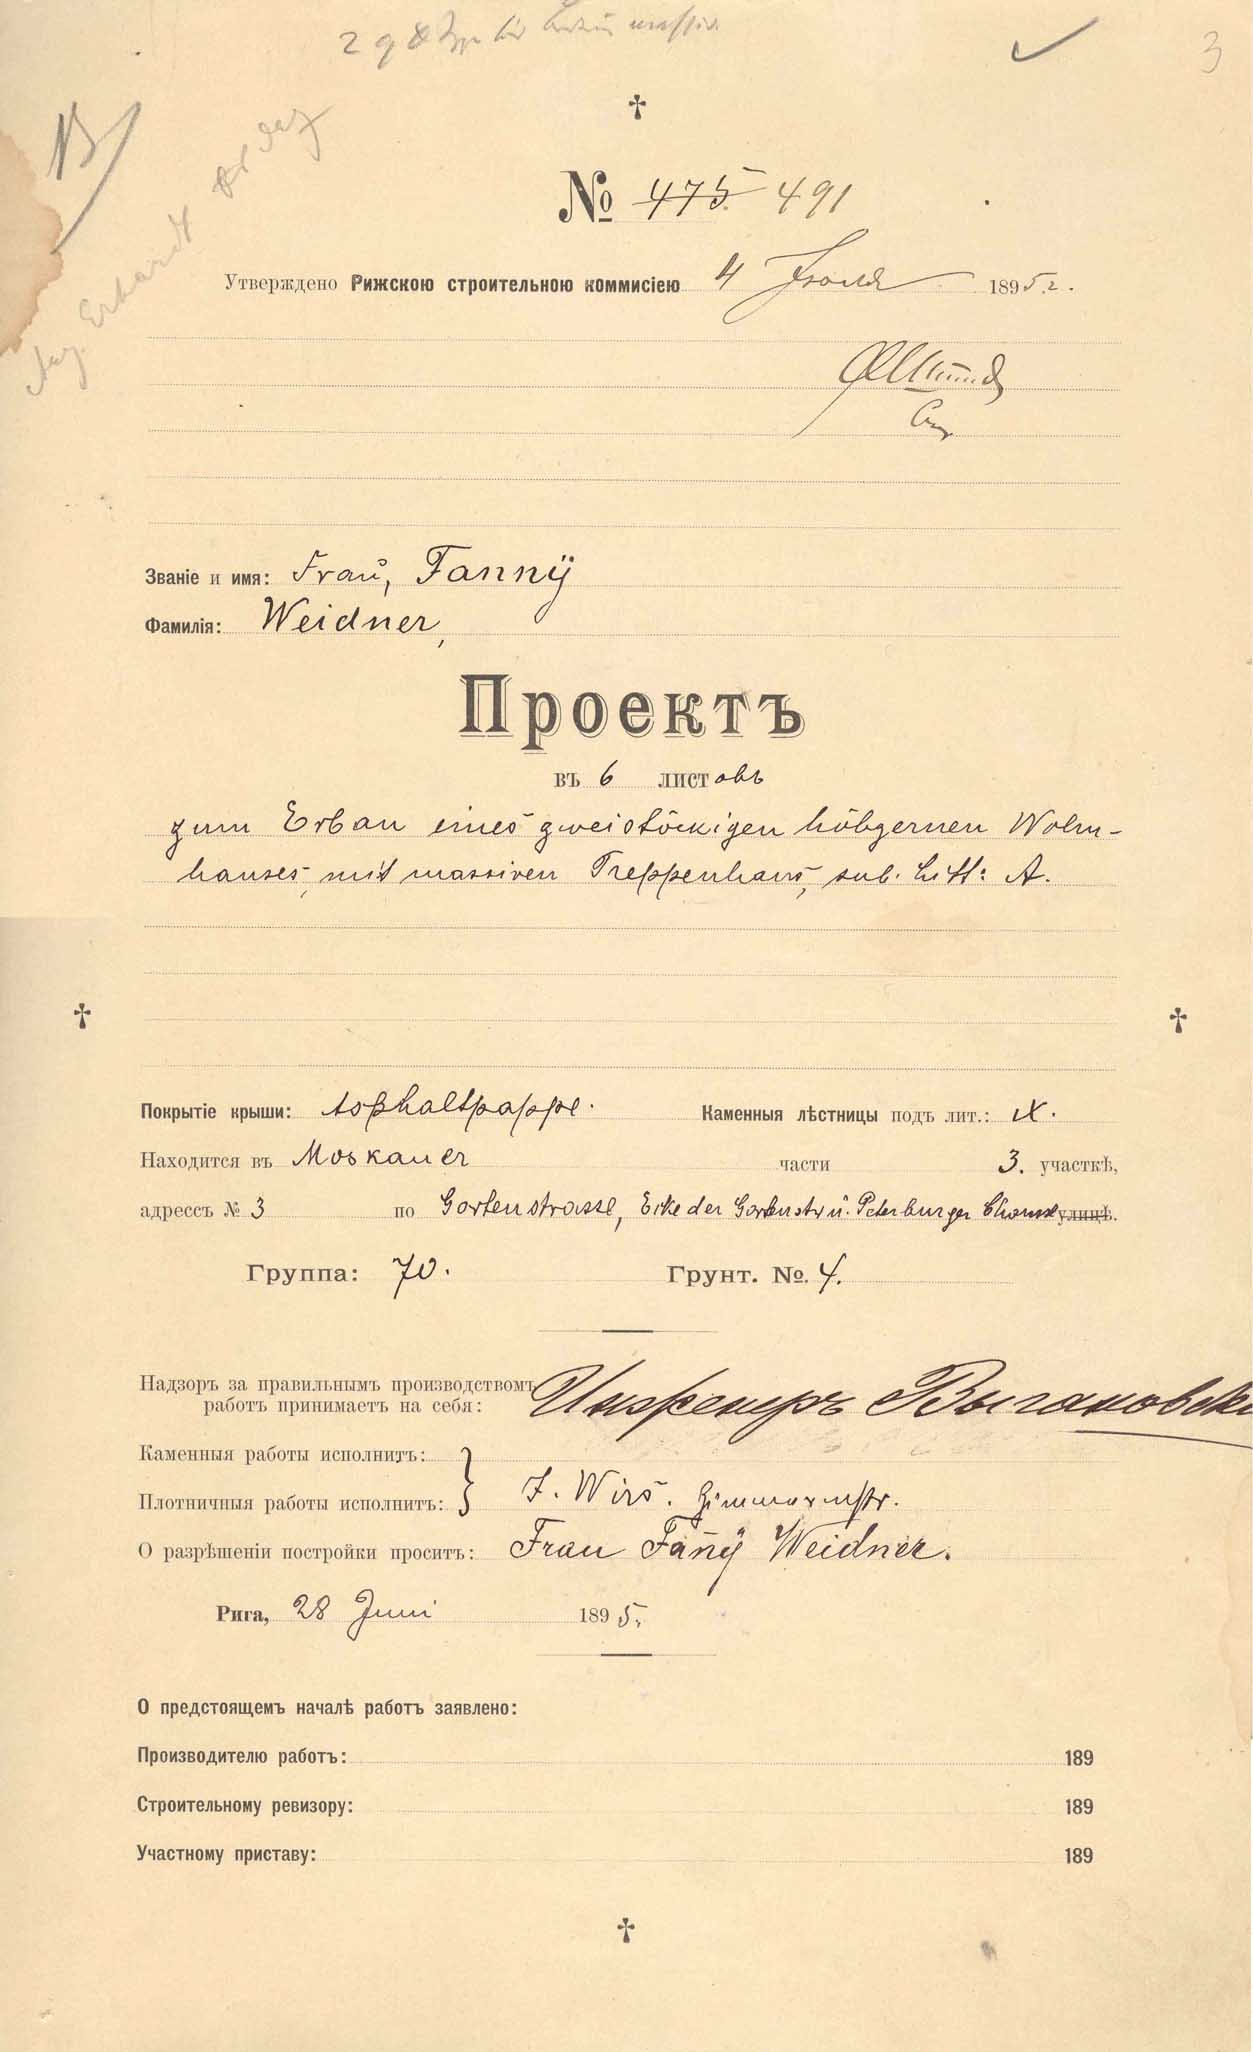 3
№ 475. 491
Утверждено Рижскою строительною коммисіею 4 Іюля 1895 г.
Званіе и имя: Frau, Fanny
Фамилія: Weidner,
Проектъ
въ 6 листовъ
zum Erbau eines zweistöckigen hölzernen Wohn-
hauses, mit massiven Treppenhaus, sub. Litt: A.
Покрытіе крыши: Asphaltpappe. Каменныя лѣстницы подъ лит.:
Находится въ Moskauer части 3. участкѣ,
адрессъ № 3 по Gartenstrasse, Ecke der Gartenstr u. Peterburger улицѣ.
Группа: 70. Грунт. №. 4.
Надзоръ за правильнымъ производствомъ
работъ принимаетъ на себя: Инженеръ
Каменныя работы исполнитъ:
Плотничныя работы исполнитъ: J. Wirs. Zimmermstr.
О разрѣшеніи постройки проситъ: Frau Fañy Weidner.
Рига, 28 Juni 1895.
О предстоящемъ началѣ работъ заявлено:
Производителю работъ: 189
Строительному ревизору: 189
Участному приставу: 189